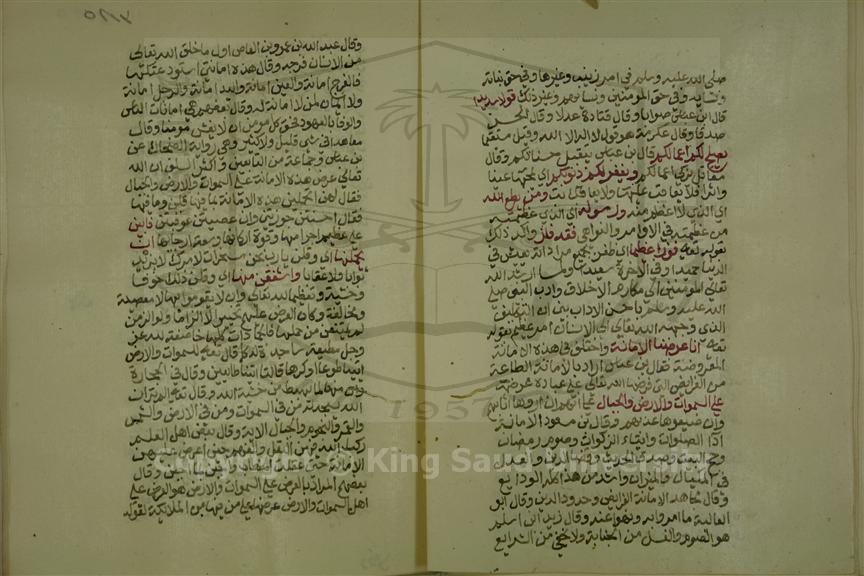 صلى الله عليه وسلم في امر زينب وغيرها وفي حق بناته
ونسايه وفي حق المومنين ونسائهم وغير ذلك قولا سديدا
قال ابن عباس صوابا وقال قتادة عدلا وقال الحسن
صدقا وقال عكرمة هو قول لا اله الا الله وقيل مستقيما
يصلح لكم اعمالكم قال ابن عباس يتقبل حسناتكم وقال
مقاتل يزكى اعمالكم ويغفر لكم ذنوبكم اي يمحها عينا
واثرا فلا يعاقب عليها ولا يعاتب ومن يطع الله
اي الذي لا اعظم منه ورسوله اي الذي عظمته
من عظمته في الاوامر والنواهي فقد فاز واكد ذلك
بقوله تعالى فوزا عظيما اي ظفر بجميع مراداته يعيش في
الدنيا حميدا وفي الاخرة سعيدا ولما ارشد الله
تعالى المومنين الى مكارم الاخلاق وادب النبي صلى
الله عليه وسلم باحسن الاداب بين ان التكليف
الذي وجهه الله تعالى الى الانسان امر عظيم بقوله
تعالى انا عرضنا الامانة واختلف في هذه الامانة
المعروضة فقال ابن عباس اراد بالامانة الطاعة
من الفرايض التي فرضها الله تعالى على عباده عرضها
على السموات والارض والجبال على انهم ان ادوها اثابهم
وان ضيعوها عذبهم وقال ابن مسعود الامانة
اداء الصلوات وايتاء الزكوات وصوم رمضان
وحج البيت وصدق الحديث وقضاء الدين والعدل
في المكيال والميزان واشد من هذا كله الودايع
وقال مجاهد الامانة الفرايض وحدود الدين وقال ابو
العالية ما امروا به ونهوا عنه وقال زيد ابن اسلم
هو الصوم والغسل من الجنابة ولا يخفى من الشرايع
وقال عبد الله بن عمرو بن العاص اول ما خلق الله تعالى
من الانسان فرجه وقال هذه امانتي استودعتكها
فالفرج امانة والعين امانة واليد امانة والرجل امانة
ولا ايمان لمن لا امانة له وقال بعضهم هي امانات الناس
والوفا بالعهود فحق كل مومن ان لا يغش مومنا ولا
معاهدا في شي قليل ولا كثير وهي رواية الضحاك عن
ابن عباس وجماعة من التابعين واكثر السلف ان الله
تعالى عرض هذه الامانة على السموات والارض والجبال
فقال لهن اتحملن هذه الامانة بما فيها قلن وما فيها
فقال ان احسنتن جوزيتن وان عصيتن عوقبتن فابين
على عظم اجرامها وقوة اركانها وسعة ارجائها ان
يحملنها اي وقلن يا رب نحن مسخرات لامرك لا نريد
ثوابا ولا عقابا واشفقن منها اي وقلن ذلك خوفا
وخشية وتعظيما لله تعالى وان لا يقوموا بها لا معصية
ومخالفة وكان العرض عليهن تخييرا لا الزاما ولو الزمهن
لم يمتنعن من حملها فالجمادات كلها خاضعة لله عز
وجل مطيعة ساجدة له كما قال تعالى للسموات والارض
ائتيا طوعا او كرها قالتا اتينا طائعين وقال في الحجارة
وان منها لما يهبط من خشية الله وقال تعالى الم تر ان
الله يسجد له من في السموات ومن في الارض والشمس
والقمر والنجوم والجبال الاية وقال بعض اهل العلم
ركب الله فيهن العقل والفهم حين عرض عليهن
الامانة حتى عقلن الخطاب واجبن بما اجبن وقال
بعضهم المراد بالعرض على السموات والارض هو العرض على
اهل السموات والارض عرضها على من فيها من الملائكة لقوله